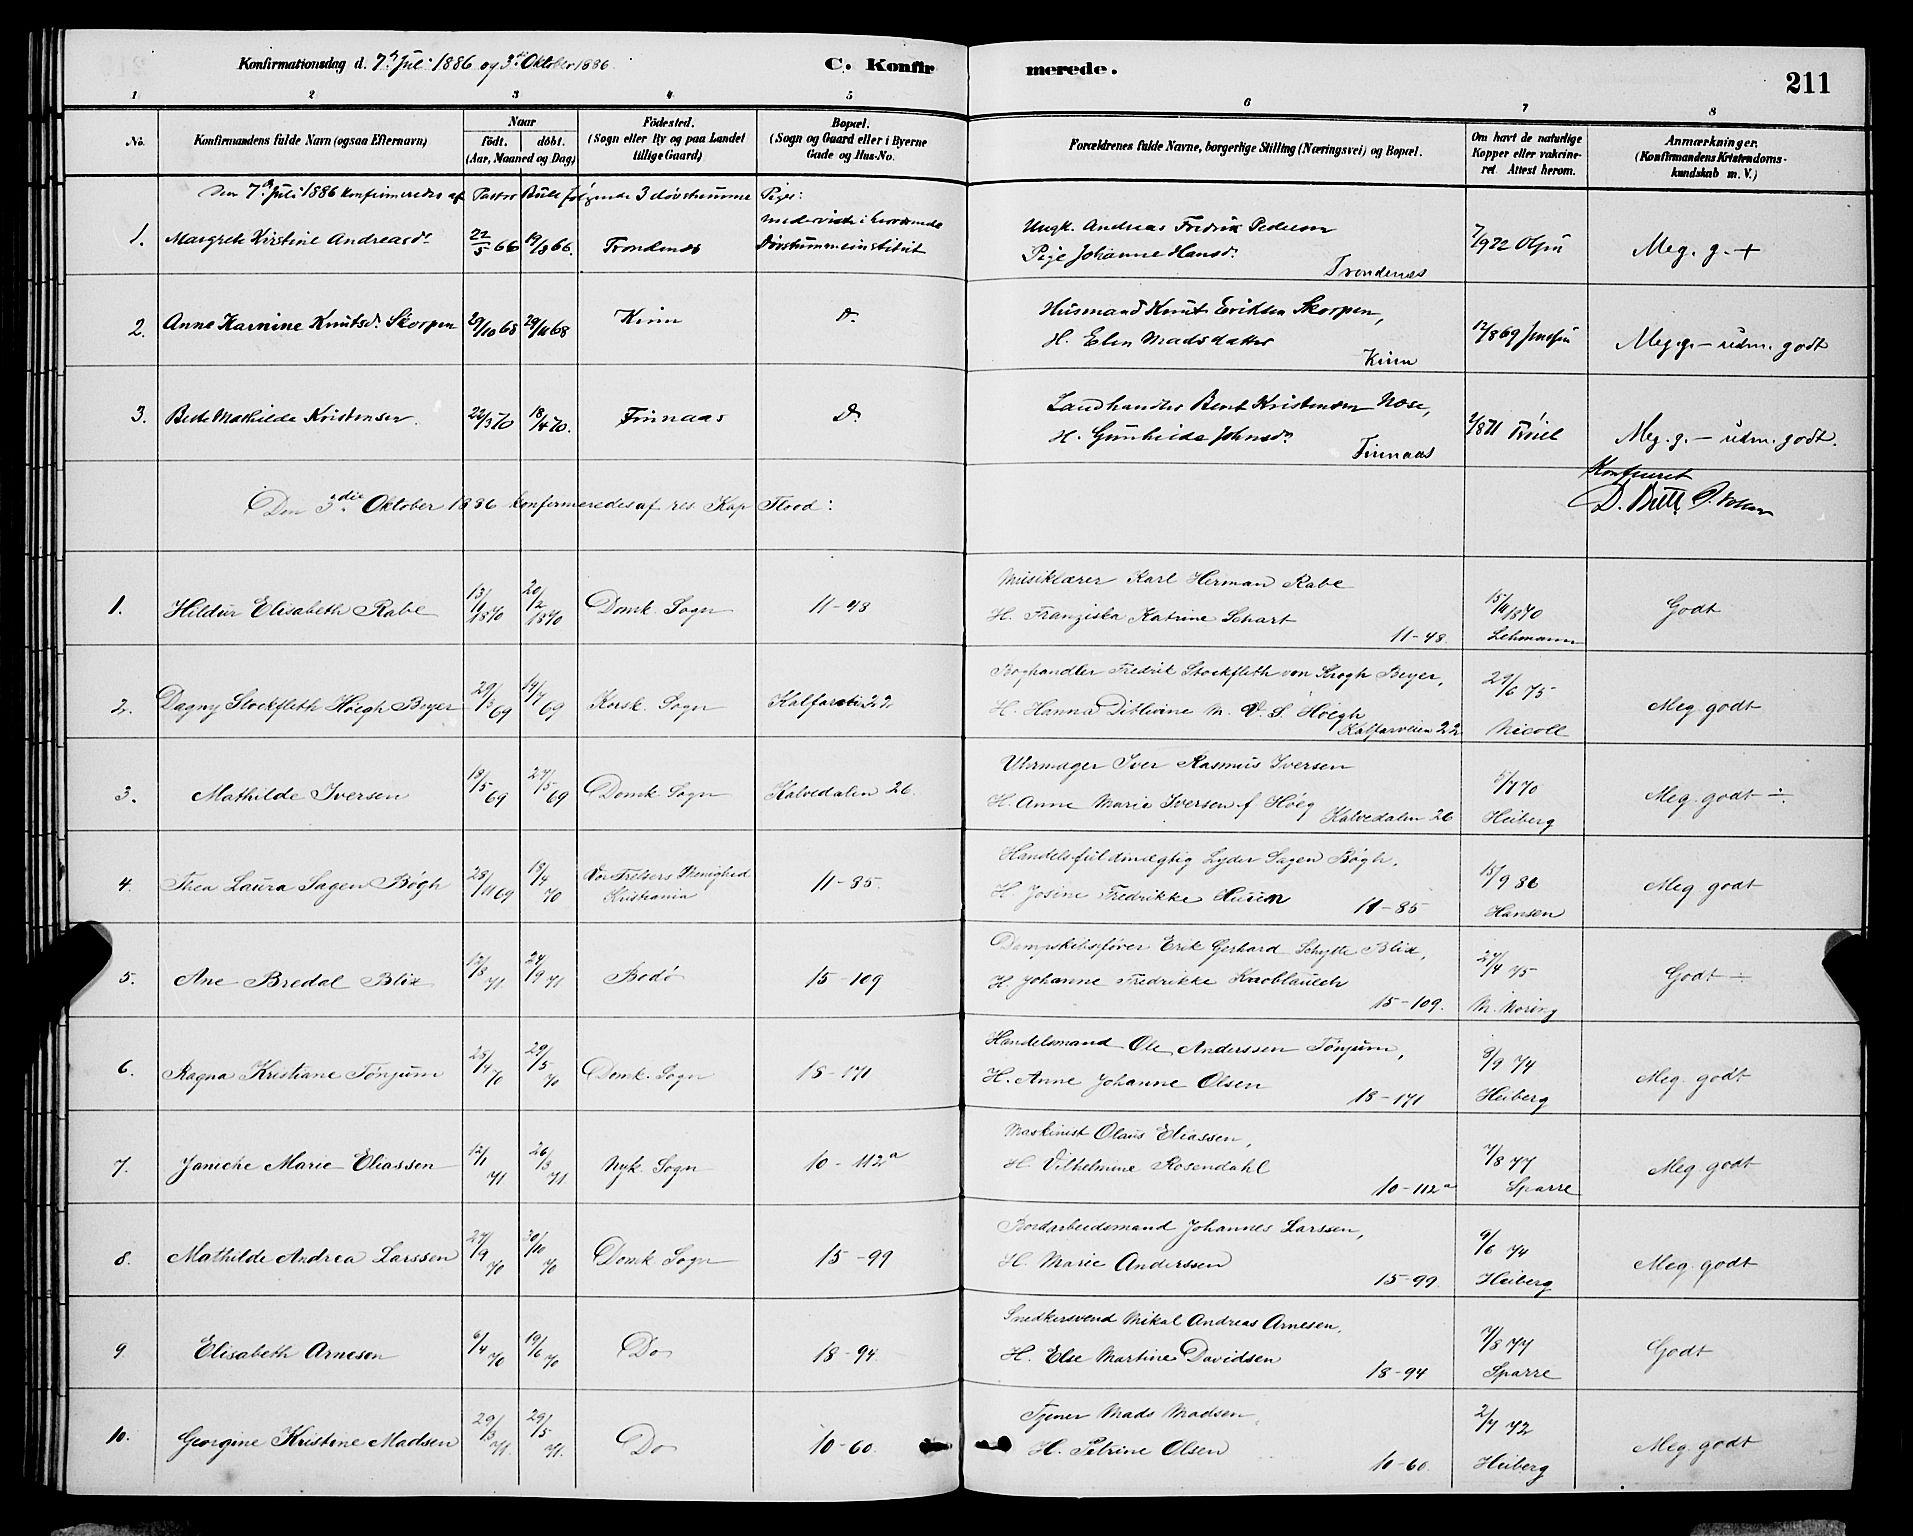 Konfirmationsdag d. 7de Juli 1886 og 3die Oktober 1886. C. Konfirmerede. 211
1 2 3 4 5 6 7 8
No. Konfirmandens fulde Navn (ogsaa Efternavn) Naar født. døbt. (Aar, Maaned og Dag) Fødested. (Sogn eller By og paa Landet tillige Gaard) Bopæl. (Sogn og Gaard eller i Byerne Gade og Hus-No. Forældrenes fulde Navne, borgerlige Stilling (Næringsvei) og Bopæl. Om havt de naturlige Kopper eller vakcineret. Attest herom. Anmærkninger. (Konfirmandens Kristendomskundskab m. V.)
Den 7de Juli 1886 konfirmeredes af Pastor Bull følgende 3 døvstumme Piger:
1. Margrete Kirstine Andreasdr. 22/5 66 19/8 66. Trondenæs Døvstummeinstitut Ungk. Andreas Fredrik Pedersen
Pige Johanne Hansdr. Trondenæs 7/9 72 Meg. g. +
2. Anne Karnine Knutsdr. Skorpen 29/10 68 29/11 68 Kinn Do Husmand Knut Eriksen Skorpen,
H. Elen Madsdatter Kinn 12/8 69 Meg. g. – udm. godt
3. Berte Mathilde Kristensen. 22/3 70 18/4 70. Finnaas Do Landhandler Bent Kristensen Nose,
H. Gunhilde Johnsdr. Finnaas 2/8 71 Meg. g. – udm. godt.
Konfereret
Den 3die Oktober 1886 konfirmeredes af res. Kap Flood:
1. Hildur Elisabeth Rabe 13/1 1870 20/2 1870 Domk. Sogn 11-48 Musiklærer Karl Herman Rabe
H. Franziska Katrine Schart 11-48. 15/11 1870 Lehmann Godt
2. Dagny Stockfleth Høegh Beyer 29/3 69 14/7 69 Korsk. Sogn Kalfarvei 22 Boghandler Fredrik Stockfleth von Krogh Beyer,
H. Hanna Ditlevine M. V. S. Høegh Kalfarveien 22 21/6 75 Nicoll Meg godt
3. Mathilde Iversen 18/5 69 27/5 69 Domk. Sogn Kalvedalen 26. Uhrmager Iver Rasmus Iversen
H. Anne Marie Iversen f. Høeg Kalvedalen 26 5/7 70 Heiberg Meg. godt ÷.
4. Thea Laura Sagen Bøgh 28/11 69 18/4 70 Vor Frelsers Menighed Kristiania 11-85. Handelsfuldmægtig Lyder Sagen Bøgh,
H. Josine Fredrikke 11-85 15/9 86 Hansen Meg godt
5. Ane Bredal Blix 12/8 71 24/9 71 Bodø 15-109 Dampskibsfører Erik Gerhard Schytte Blix,
H. Johanne Fredrikke Knoblauch 15-109. 27/4 75 Godt ÷
6. Ragna Kristiane Tønjum 28/4 70 29/5 70 Domk. Sogn 18-171 Handelsmand Ole Anderssen Tønjum,
H. Anne Johanne Olsen 18-171 9/9 74 Heiberg Meg. godt
7. Janiche Marie Eliassen 12/1 71 26/3 71 Nyk. Sogn 10-112a Maskinist Olaus Eliassen,
H. Vilhelmine Rosendahl 10-112a 7/8 77 Sparre Meg godt
8. Mathilde Andrea Larssen 27/9 70 20/10 70 Domk. Sogn 15-99 Jordarbeidsmand Johannes Larssen,
H. Marie Anderssen 15-99. 9/6 74 Heiberg Meg. godt
9 Elisabeth Arnesen 6/4 70 19/6 70 Do 18-94. Snedkersvend Mikal Andreas Arnesen,
H. Else Martine Davidsen 18-94 7/8 77 Sparre Godt
10. Georgine Kristine Madsen 29/3 71. 29/5 71. Do 10-60. Tjener Mads Madsen
H. Petrine Olsen 10-60. 2/7 72 Heiberg Meg. godt